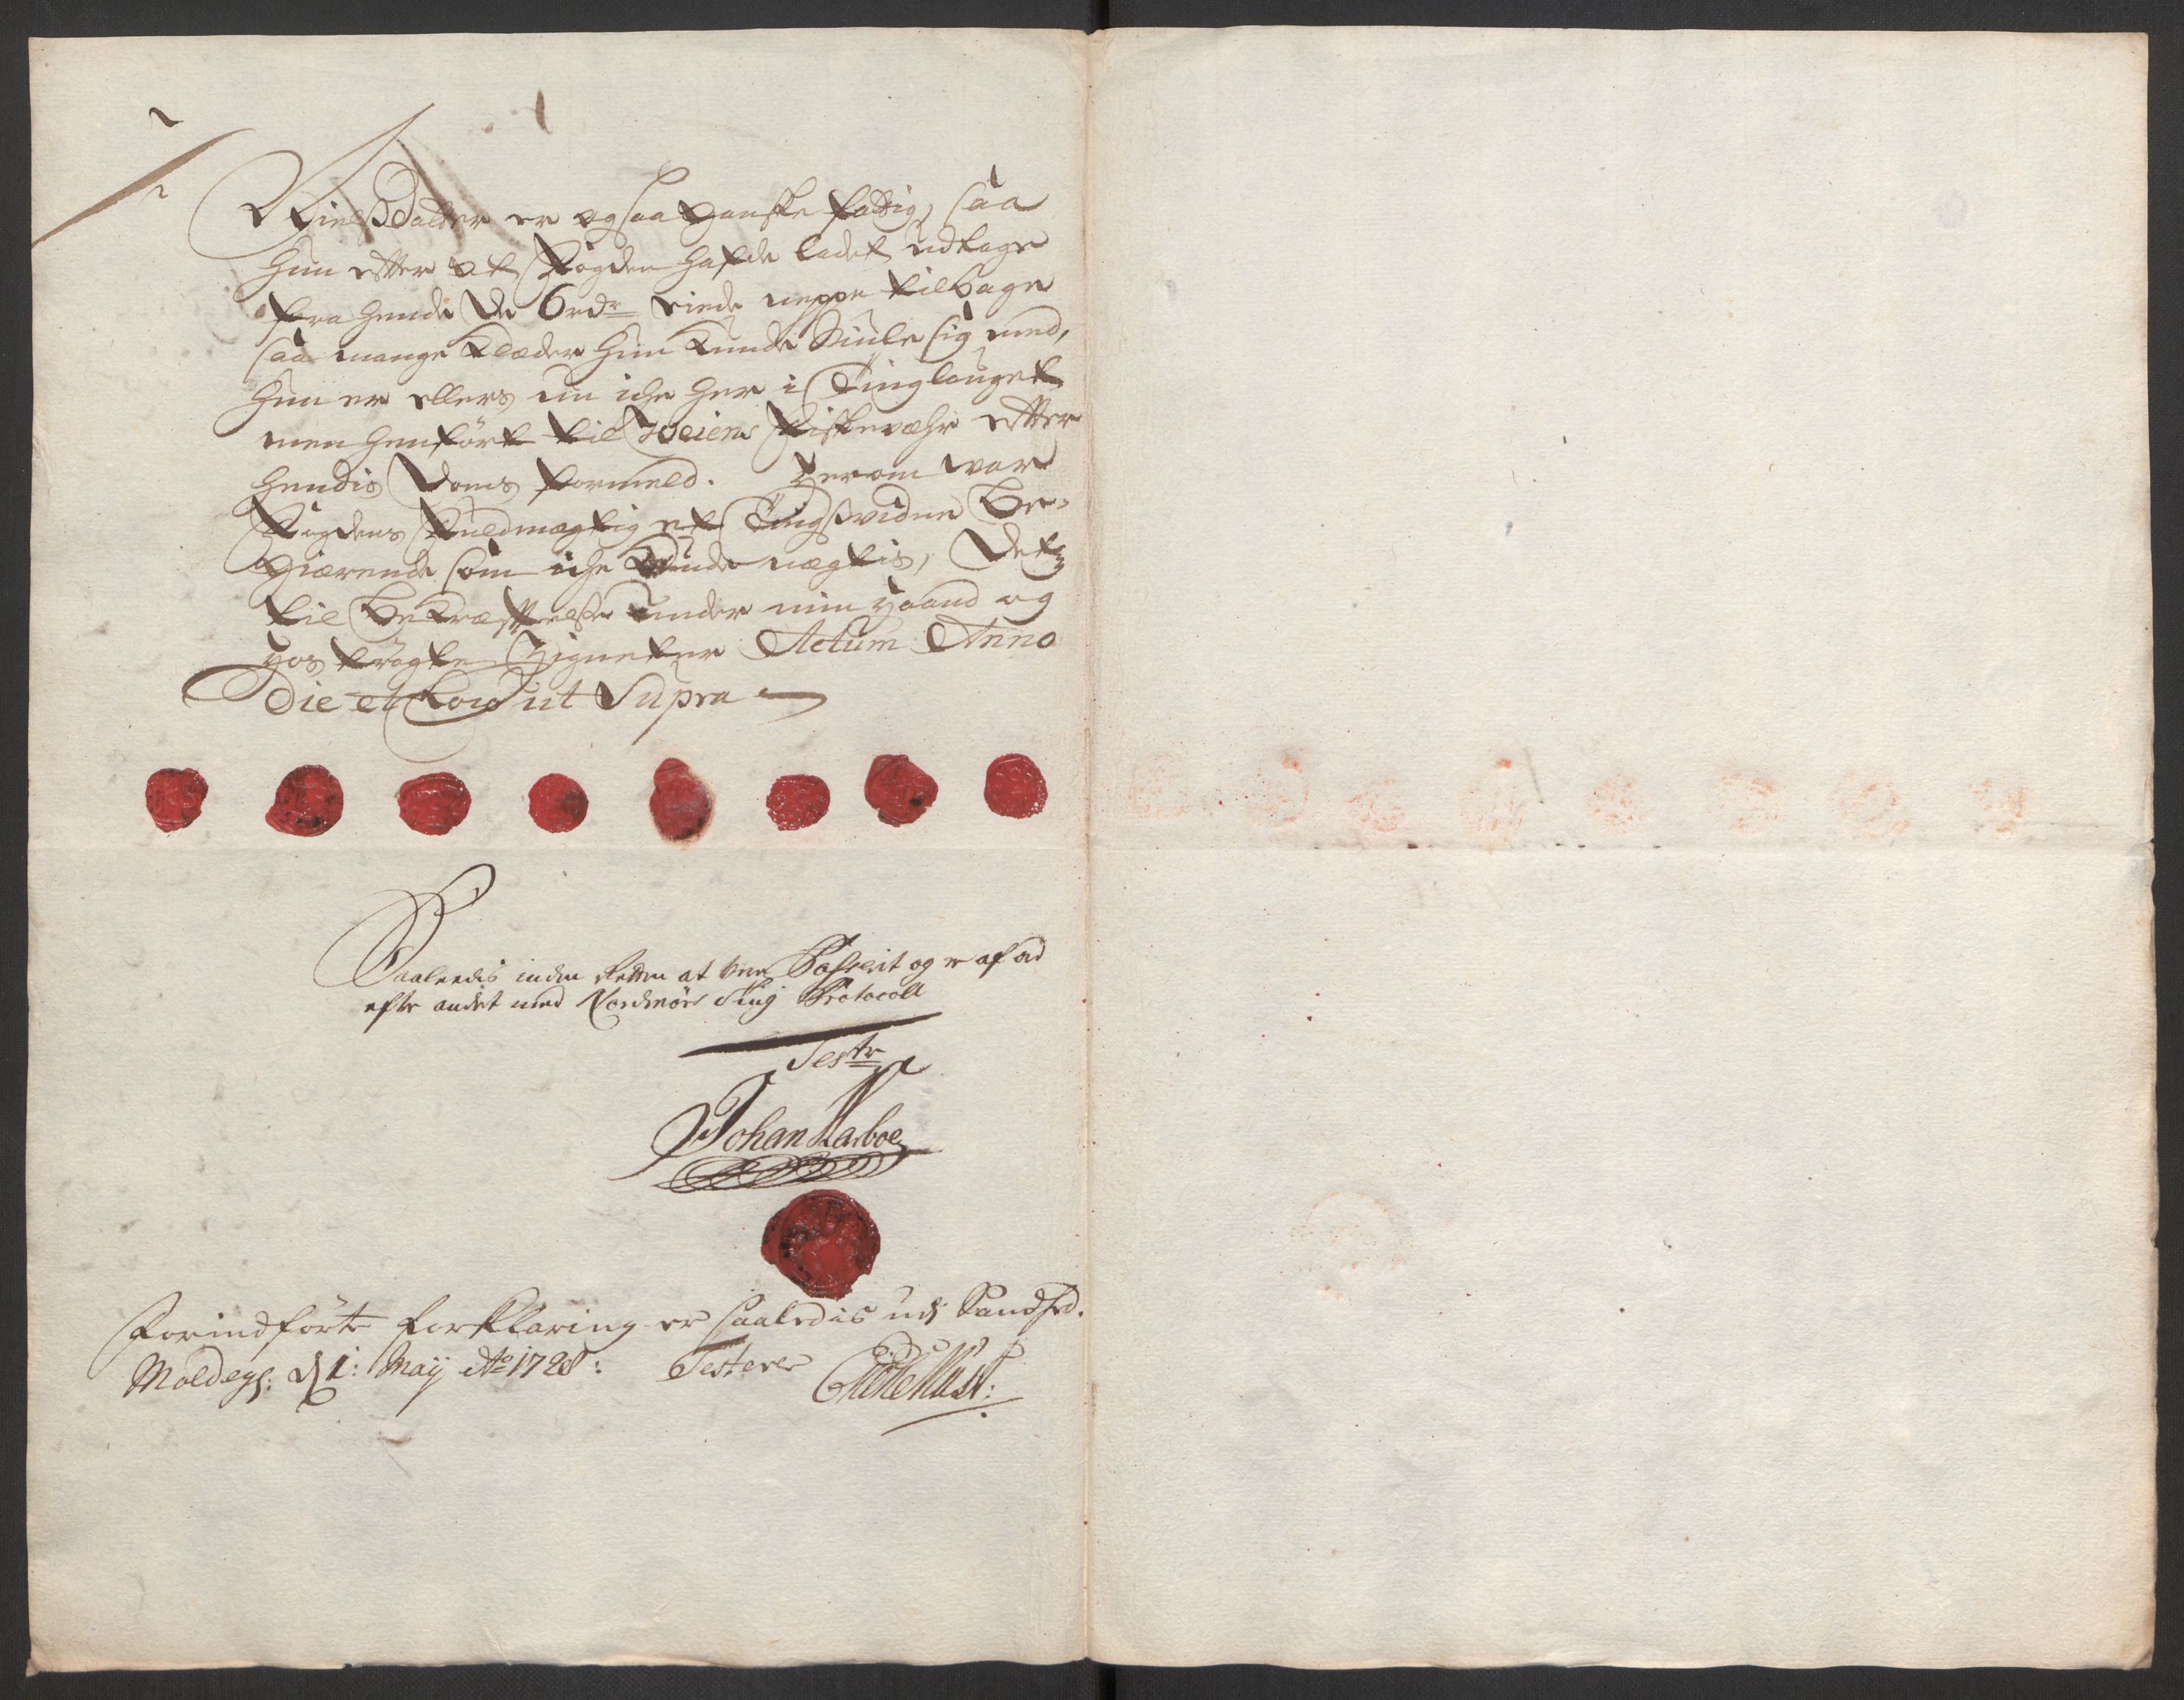 NielsDatter er ogsaa gandske fattig, saa
hun efter at Fogden hafde ladet udtage
fra hende de 6 rdr viede neppe tilbage
saa mange Klæder hun kunde skiule sig med,
hun er ellers nu iche her i Tinglauget
men henført til Weiens Fiskevæhr etter
hendis Doms formeld. Herom war
Fogdens Fuldmægtig et Tingsvidne Be-
giærende som iche kunde nægtis, Det
til Bekræftelse under min Haand og
hos trøgte Zigneter Actum Anno
Die et Loco ut Supra
Saaleedis inden Retten at være Passerit og er af ord
efter andet med Nordmørs Ting Protocoll
Test
Johan Karboe
Forindførte forklaring er saaledis udj Sandhed.
Moldegr: d 1: Maij Ao 1728: Testerer